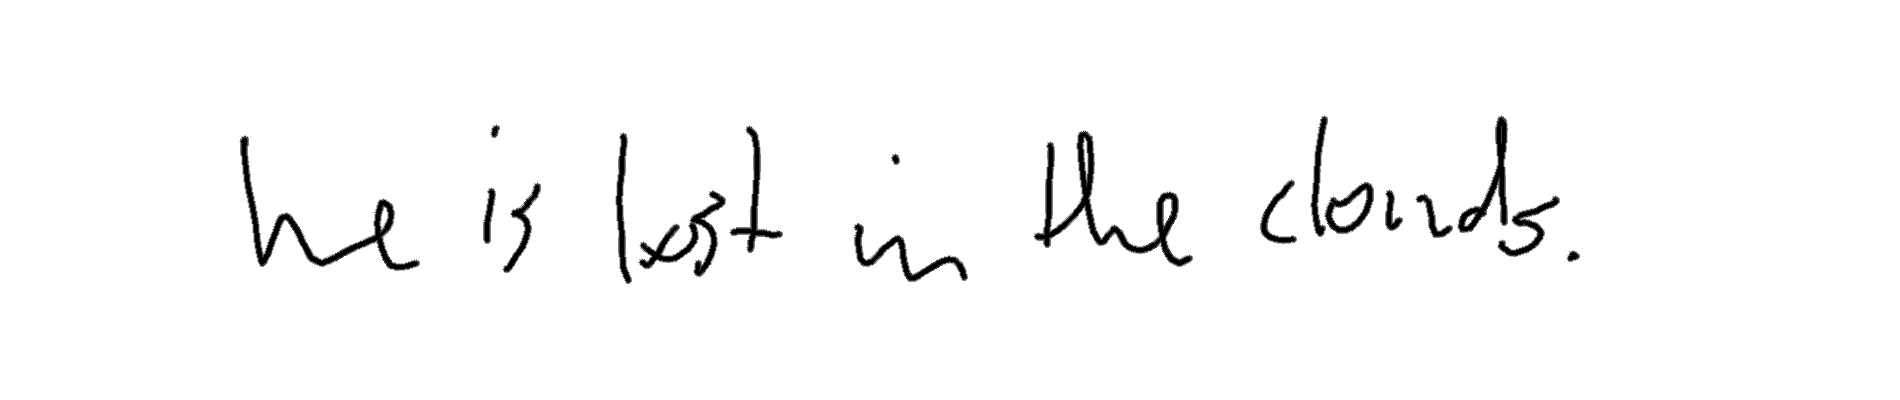 he is lost in the clouds.